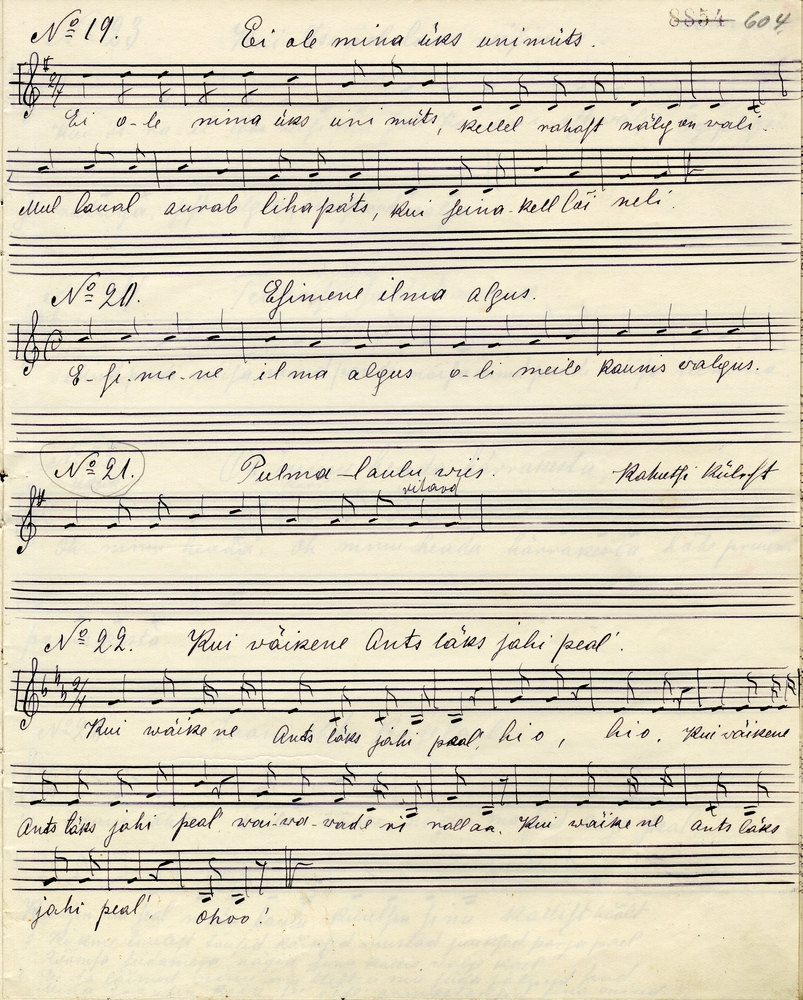 8854 604.
№ 19. Ei ole mina üks unimüts.
2/4
Ei o-le mina üks uni müts, kellel rahast nälg on vali.
Mul laual aurab lihapäts, kui seina-kell lõi neli.
№ 20. Esimene ilma algus.
C
E-si-me-ne ilma algus o-li meile kaunis valgus.
№ 21. Pulma-laulu viis.
№ 22. Kui väikene Ants läks jahi peal'.
2/4
Kui wäikene Ants läks jahi peal', hio, hio. Kui väikene
Ants läks jahi peal' wai-va-vade ri rallaa. Kui wäikene Ants läks
jahi peal'. ohoo!